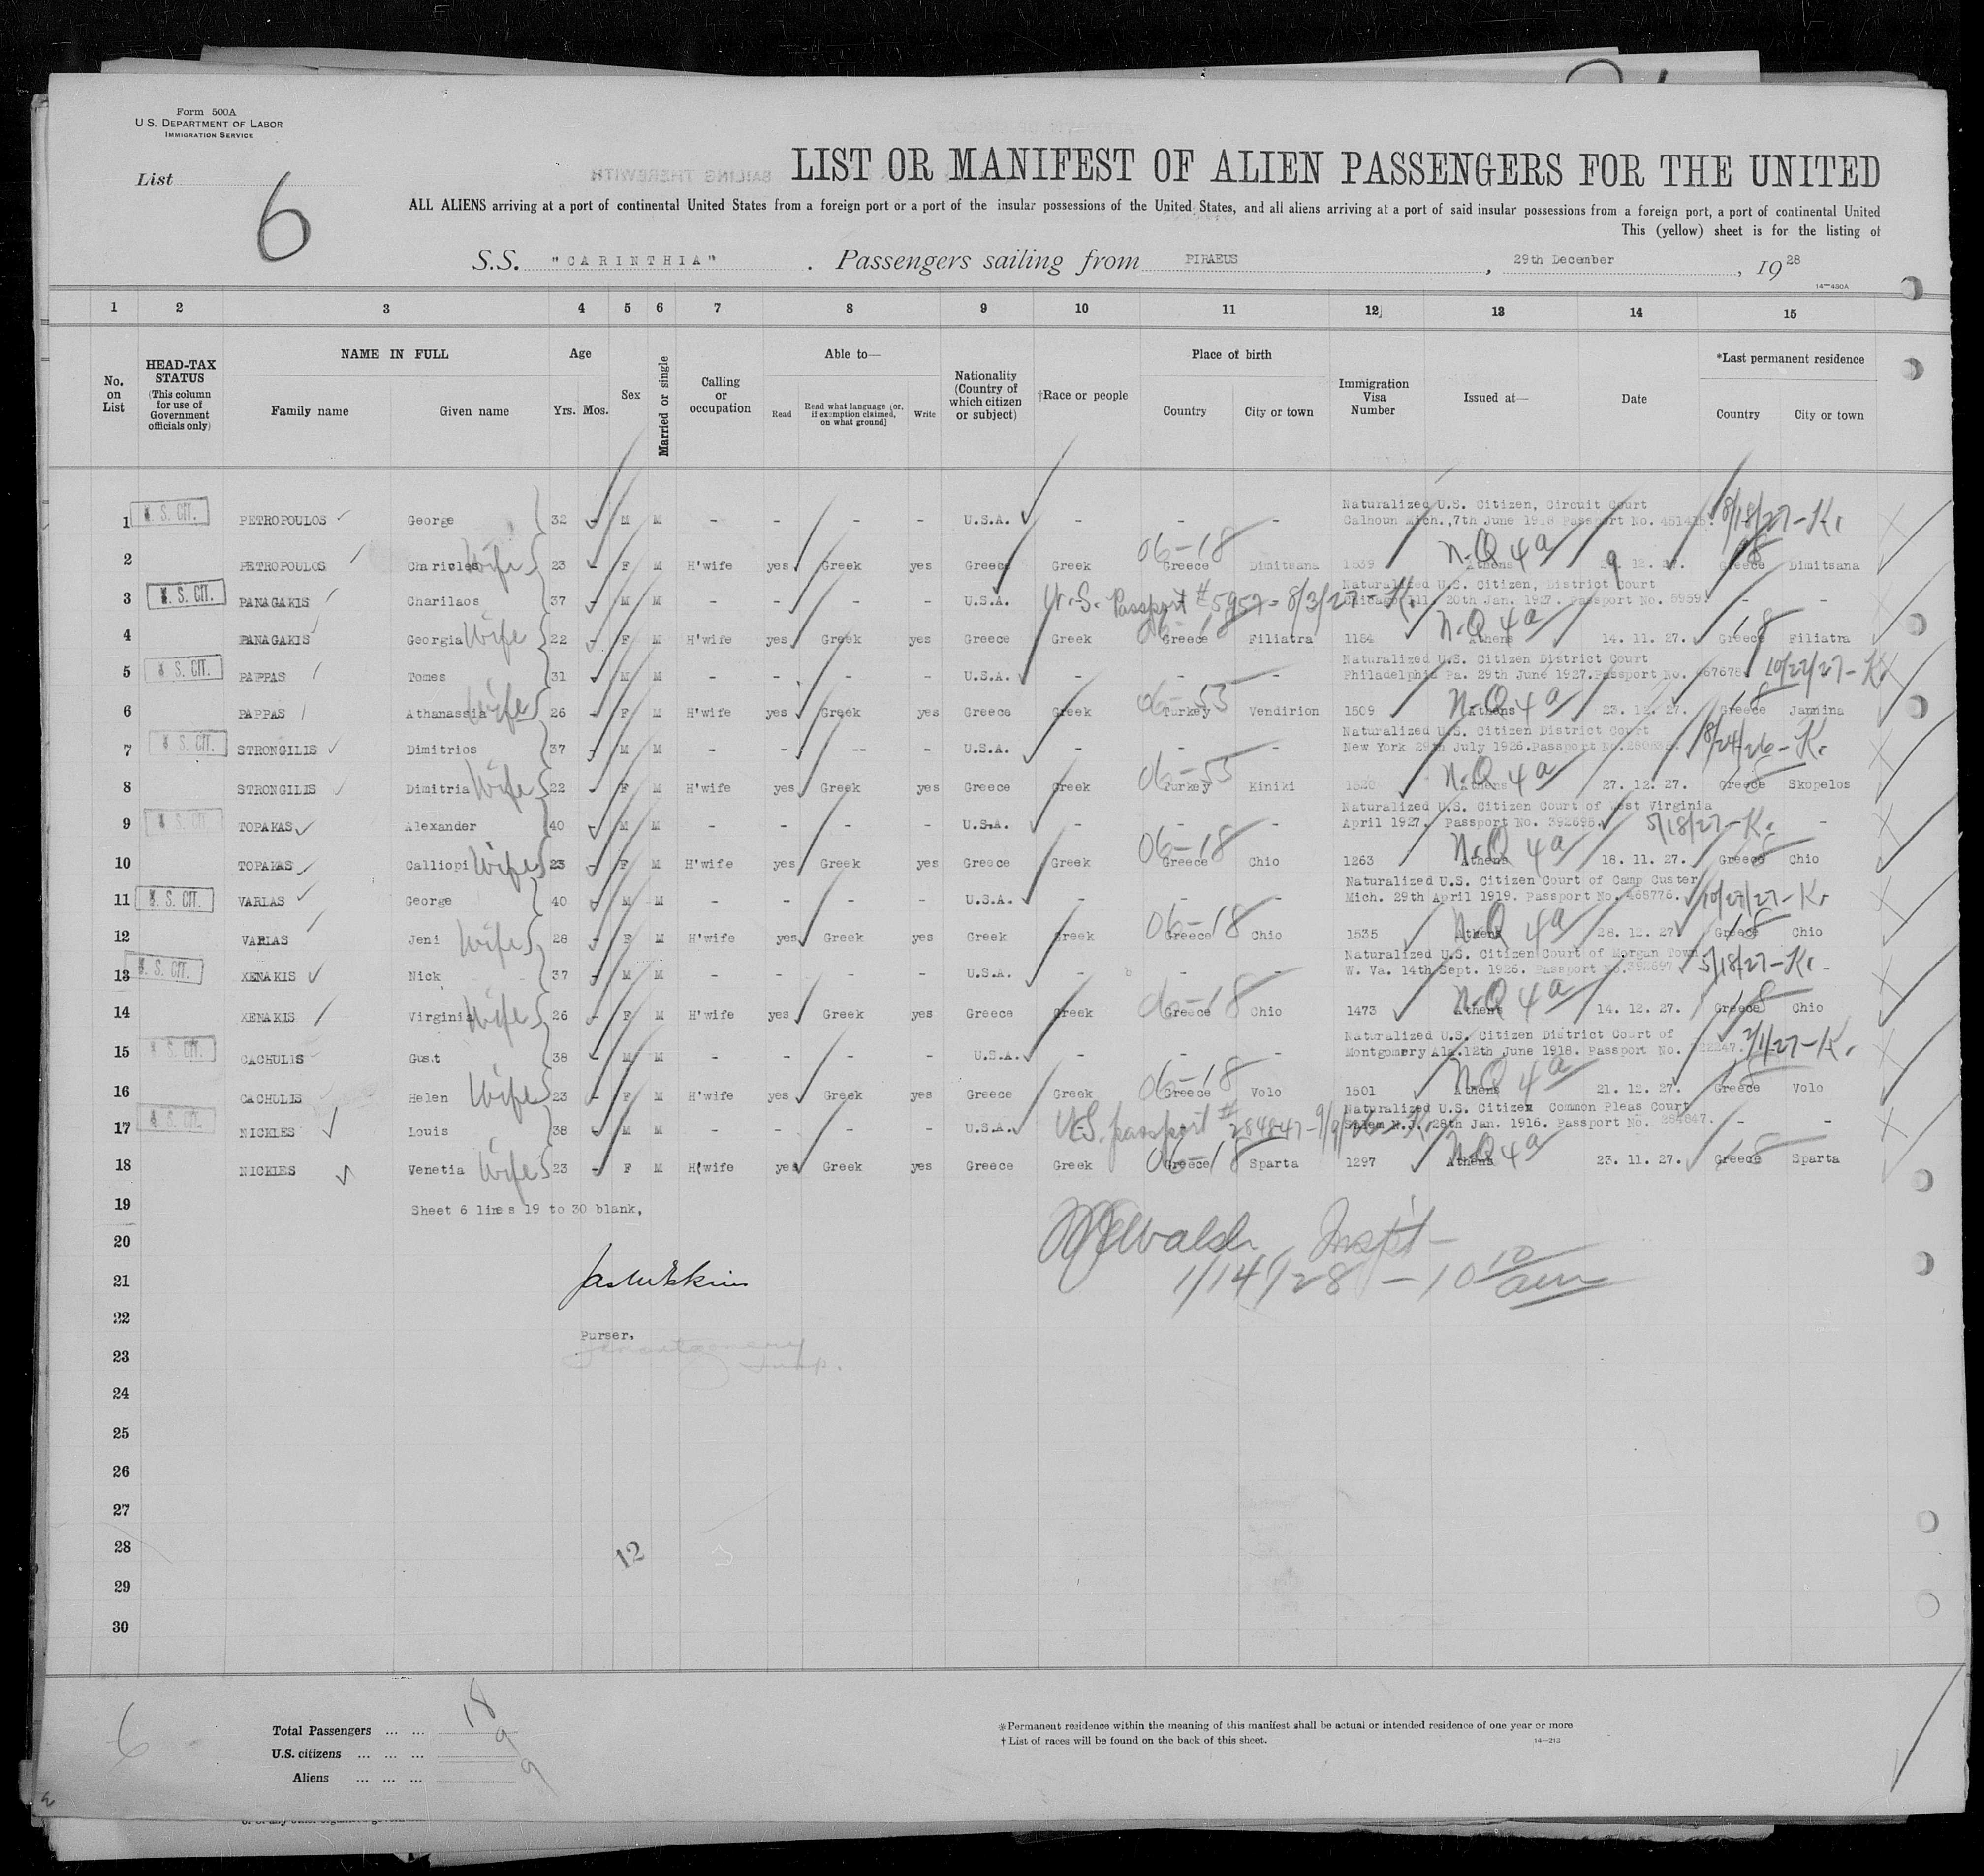 Form 500A
U.S. DEPARTMENT OF LABOR
IMMIGRATION SERVICE
List 6
LIST OR MANIFEST OF ALIEN PASSENGERS FOR THE UNITED
ALL ALIENS arriving at a port of continental United States from a foreign port or a port of the insular possessions of the United States, and all aliens arriving at a port of said insular possessions from a foreign port, a port of continental United
This (yellow) sheet is for the listing of
S.S. "CARINTHIA" . Passengers sailing from PIRAEUS , 29th December , 1928
14—430A
1 2 3 4 5 6 7 8 9 10 11 12 13 14 15
No. on List
HEAD-TAX STATUS (This column for use of Government officials only)
NAME IN FULL Family name Given name
Age Yrs. Mos.
Sex
Married or single
Calling or occupation
Able to— Read Read what language (or, if exemption claimed, on what ground) Write
Nationality (Country of which citizen or subject)
†Race or people
Place of birth Country City or town
Immigration Visa Number
Issued at—
Date
*Last permanent residence Country City or town
Naturalized U.S. Citizen, Circuit Court
1 U. S. CIT. PETROPOULOS George 32 - M M - - - - U.S.A. - - - Calhoun Mich.,7th June 1918 Passport No. 8/18/27-K.
2 PETROPOULOS Wife 23 - F M H'wife yes Greek yes Greece Greek 06-18 Greece Dimitsana 1539 N-Q 4a Athens 9. 12. 27. Greece Dimitsana
Naturalized U.S. Citizen, District Court
3 U. S. CIT. PANAGAKIS Charilaos 37 - M M - - - - U.S.A. U.S. Passport #5957-8/3/27-K. 20th Jan. 1927. Passport No. 5959. - -
4 PANAGAKIS Georgia Wife 22 - F M H'wife yes Greek yes Greece Greek 06-18 Greece Filiatra 1184 N-Q 4a Athens 14. 11. 27. Greece Filiatra
Naturalized U.S. Citizen District Court
5 U. S. CIT. PAPPAS Tomes 31 M M - - - - U.S.A. - - - Philadelphia Pa. 29th June 1927.Passport No. 10/27/27-K.
6 PAPPAS Athanassia Wife 26 - F M H'wife yes Greek yes Greece Greek 06-55 Turkey Vendirion 1509 N-Q 4a Athens 23. 12. 27. Greece Jannina
Naturalized U.S. Citizen District Court
7 U. S. CIT. STRONGILIS Dimitrios 37 - M M - - -- - U.S.A. - - - New York 29th July 1926.Passport No. 8/24/26-K.
8 STRONGILIS Dimitria Wife 22 F M H'wife yes Greek yes Greece Greek 06-55 Turkey Kiniki 1520 N-Q 4a Athens 27. 12. 27. Greece Skopelos
Naturalized U.S. Citizen Court of West Virginia
9 U. S. CIT. TOPAKAS Alexander 40 M M - - - - U.S.A. - - - April 1927. Passport No. 392695. 5/18/27-K. -
10 TOPAKAS Calliopi Wife 23 F M H'wife yes Greek yes Greece Greek 06-18 Greece Chio 1263 N-Q 4a Athens 18. 11. 27. Greece Chio
Naturalized U.S. Citizen Court of Camp Custer
11 U. S. CIT. VARLAS George 40 M M - - - - U.S.A. - - - Mich. 29th April 1919. Passport No. 465776. 10/27/27-K.
12 VARLAS Jeni Wife 28 F M H'wife yes Greek yes Greek Greek 06-18 Greece Chio 1535 N-Q 4a Athens 28. 12. 27. Greece Chio
Naturalized U.S. Citizen Court of Morgan Town
13 U. S. CIT. XENAKIS Nick 37 M M - - - - U.S.A. - - - W. Va. 14th Sept. 1926. Passport No. 392697. 5/18/27-K. -
14 XENAKIS Virginia Wife 26 F M H'wife yes Greek yes Greece Greek 06-18 Greece Chio 1473 N-Q 4a Athens 14. 12. 27. Greece Chio
Naturalized U.S. Citizen District Court of
15 U. S. CIT. CACHULIS Gust 38 - M M - - - - U.S.A. - - - Montgomery Ala.12th June 1918. Passport No. 7/1/27-K.
16 CACHULIS Helen Wife 23 F M H'wife yes Greek yes Greece Greek 06-18 Greece Volo 1501 N-Q 4a Athens 21. 12. 27. Greece Volo
Naturalized U.S. Citizen Common Pleas Court
17 U. S. CIT. NICKLES Louis 38 M M - - - - U.S.A. U.S. passport #284847 Salem N.J. 28th Jan. 1916. Passport No. 284847. - -
18 NICKLES Venetia Wife 23 - F M H'wife yes Greek yes Greece Greek 06-18 Greece Sparta 1297 N-Q 4a Athens 23. 11. 27. Greece Sparta
19 Sheet 6 lines 19 to 30 blank,
20 Walsh Inspt-
21 1/14/28 - 10 10 am
22
Purser,
23
24
25
26
27
28 12
29
30
6
Total Passengers ... ... 18
U.S. citizens ... ... ... 9
Aliens ... ... ... 9
*Permanent residence within the meaning of this manifest shall be actual or intended residence of one year or more
† List of races will be found on the back of this sheet.
14—212